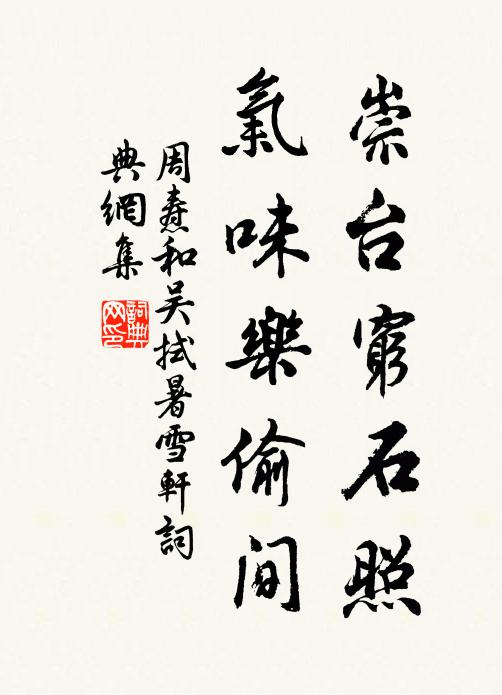 崇台窮石照
氣味樂偷间
周焘和吴拭暑雪軒詞
典網集
詞典
网印